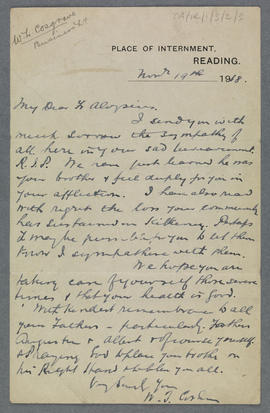 W. T. Cosgrave
Business Lt
CA/IR/1/5/2/5
PLACE OF INTERNMENT,
READING.
Novr 19th 1918.
My Dear Fr Aloysius,
I send you with
much sorrow the sympathy of
all here in your sad bereavement.
R.I.P. We have just learned he was
your brother & feel deeply for you in
your affliction. I have also read
with regret the loss your community
has sustained in Kilkenny. Perhaps
I may press you to let them
know I sympathise with them.
We hope you are
taking care of yourself these severe
times & that your health is good.
With kindest remembrance to all
your Fathers - particularly Fathers
Augustine & Albert & yourself
& praying God to place your brother on
his Right Hand & bless you all.
W. T. Cos